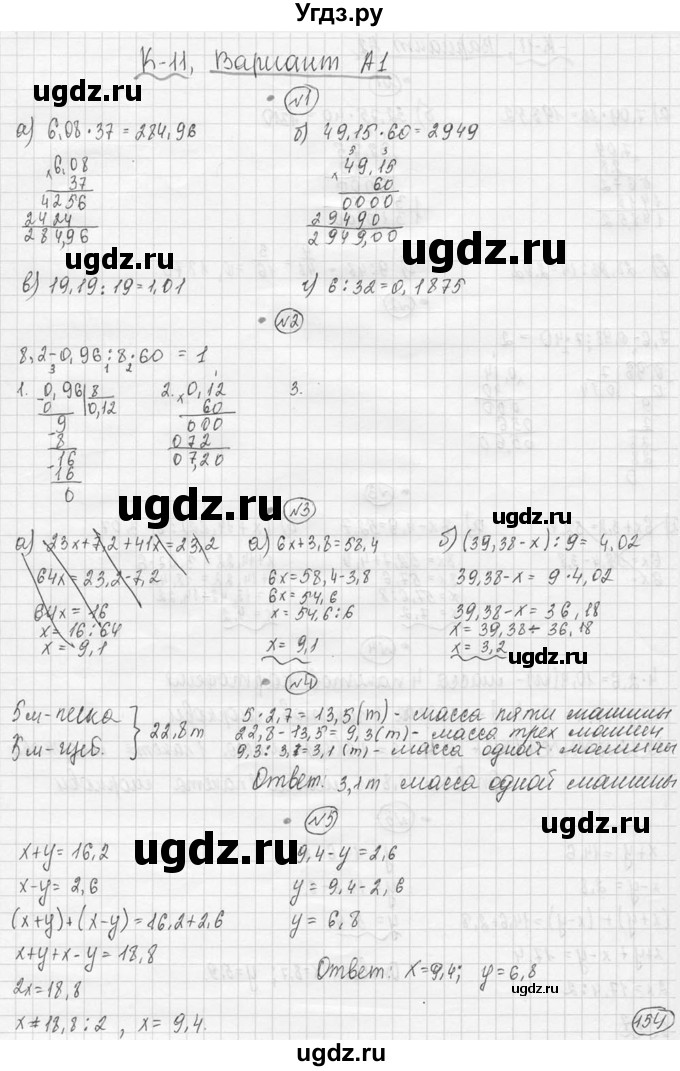 Угдз.ру
К-11, Вариант А1
ugdz.ru ugdz.ru
• №1
а) 6,08·37=284,96 б) 49,15·60=2949
ugdz.ru ugdz.ru
×6,08 3 3
37 ×49,15
4256 60
2424 0000
284,96 29490
2949,00
в) 19,19:19=1,01 г) 6:32=0,1875
• №2
8,2-0,96:8·60=1
3 1 2
1. 0,96 | 8 2. ×0,12 3.
0 0,12 60
9 000
8 072
16 07,20
16
0
ugdz.ru ugdz.ru
• №3
а) 23x+7,2+41x=23,2 а) 6x+3,8=58,4 б) (39,38-x):9=4,02
64x=23,2-7,2 6x=58,4-3,8 39,38-x=9·4,02
64x=16 6x=54,6 39,38-x=36,18
x=16:64 x=54,6:6 x=39,38-36,18
x=9,1 x=9,1 x=3,2
ugdz.ru ugdz.ru
• №4
5м-песка 5·2,7=13,5(т)-масса пяти машины
5м-щеб. } 22,8т 22,8-13,5=9,3(т)-масса трех машин
9,3:3=3,1(т)-масса одной машины
Ответ: 3,1т масса одной машины
• №5
ugdz.ru ugdz.ru
x+y=16,2 9,4-y=2,6
x-y=2,6 y=9,4-2,6
(x+y)+(x-y)=16,2+2,6 y=6,8
x+y+x-y=18,8
2x=18,8 Ответ: x=9,4; y=6,8
x=18,8:2, x=9,4.
154
ugdz.ru ugdz.ru